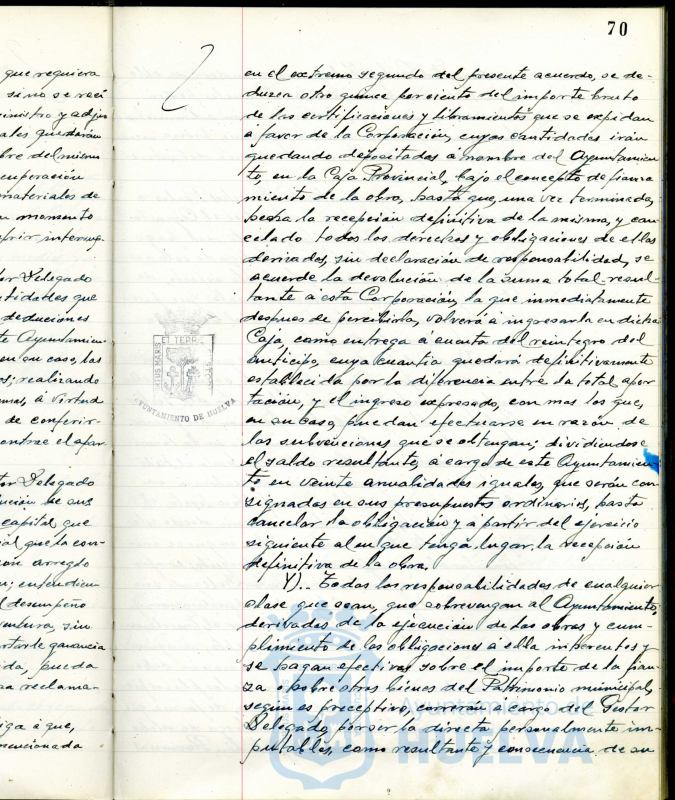 70
que requiera
sino se reci
ministro y adju
ales quedarán
bre del mismo
cuperación
materiales de
momento
or Delegado
tidades que
deducciones
te Ayuntamien
en su caso, los
s; realizando
á virtud
de conferir-
contrae el apar-
tor Delegado
lución de sus
capital que
ial que la con-
con arreglo
entendien
desempeño
sin
ganancia
ida, pueda
reclama-
iga á que,
mencionada
en el extremo segundo del presente acuerdo, se de-
duzca otro quince por ciento del importe bruto
de las certificaciones y libramientos que se expidan
a favor de la Corporación, cuyas cantidades irán
quedando depositadas á nombre del Ayuntamien
to, en la Caja Provincial, bajo el concepto de fianza
miento de la obra, hasta que, una vez terminada,
hecha la recepción definitiva de la misma, y can
celado todos los derechos y obligaciones de ellas
derivadas, sin declaración de responsabilidad, se
acuerde la devolución de la suma total resul-
tante a esta Corporación, la que inmediatamente
despues de percibirla, volverá á ingresarla en dicha
Caja, como entrega á cuenta del reintegro del
anticipo, cuya cuantía quedará definitivamente
establecida por la diferencia entre la total apor
tación, y el ingreso expresado, con mas los que,
en su caso, puedan efectuarse en razón de
las subvenciones que se obtengan; dividiendose
el saldo resultante, á cargo de este Ayuntamien-
to en veinte anualidades iguales, que serán con
signadas en sus presupuestos ordinarios, hasta
cancelar la obligación y á partir del ejercicio
siguiente al en que tenga lugar la recepción
definitiva de la obra.
Y).- Todas las responsabilidades de cualquier
clase que sean, que sobrevengan al Ayuntamiento,
derivadas de la ejecución de las obras y cum-
plimiento de las obligaciones á ella inherentes y
se hagan efectivas sobre el importe de la fian-
za o sobre otros bienes del Patrimonio municipal,
segun es preceptivo, correrán á cargo del Gestor
Delegado, por ser la directa personalmente im-
putables, como resultante y consecuencia de su
ET TERRA
AYUNTAMIENTO DE HUELVA
Ayuntamiento de
HUELVA